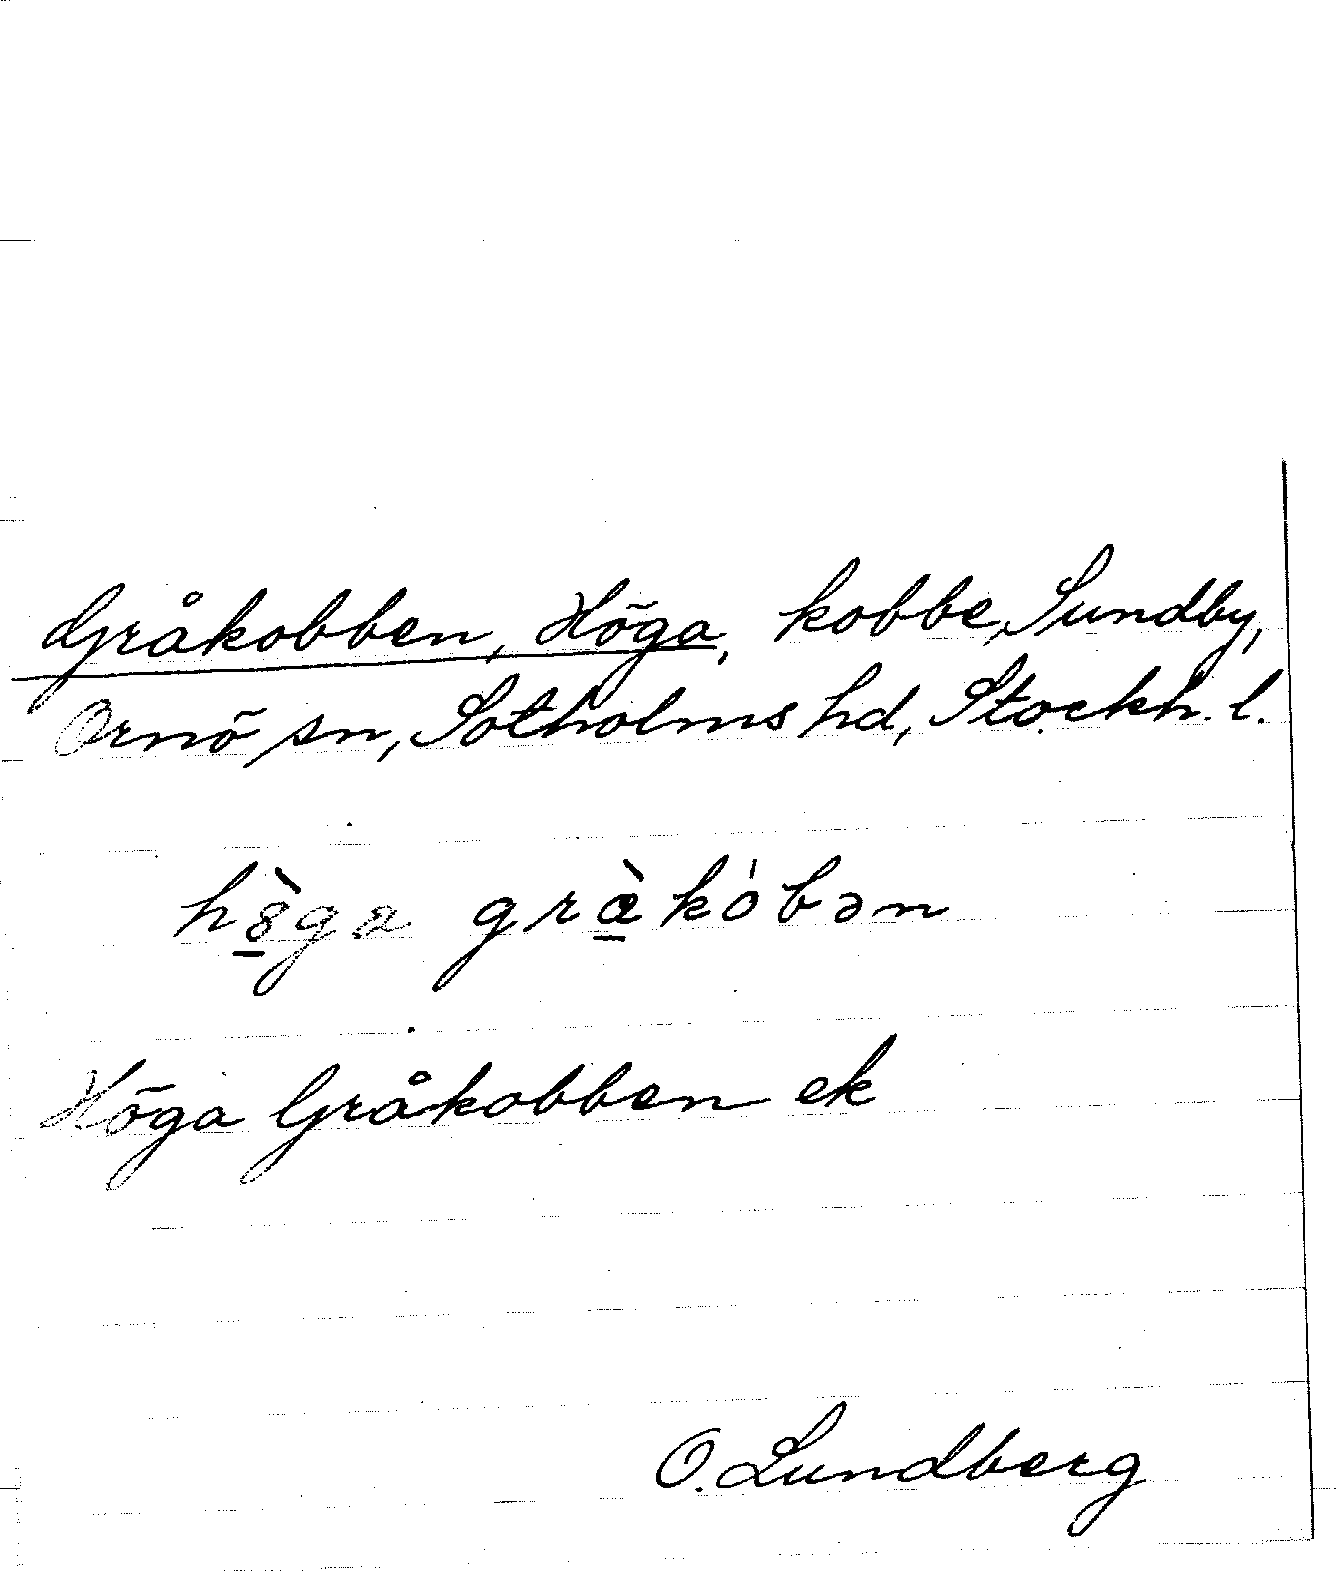 Gråkobben, Höga, kobbe, Sundby,
Ornö sn, Sotholms hd, Stockh. l.
hö̀ga gràkóbən
Höga Gråkobben ek
O. Lundberg